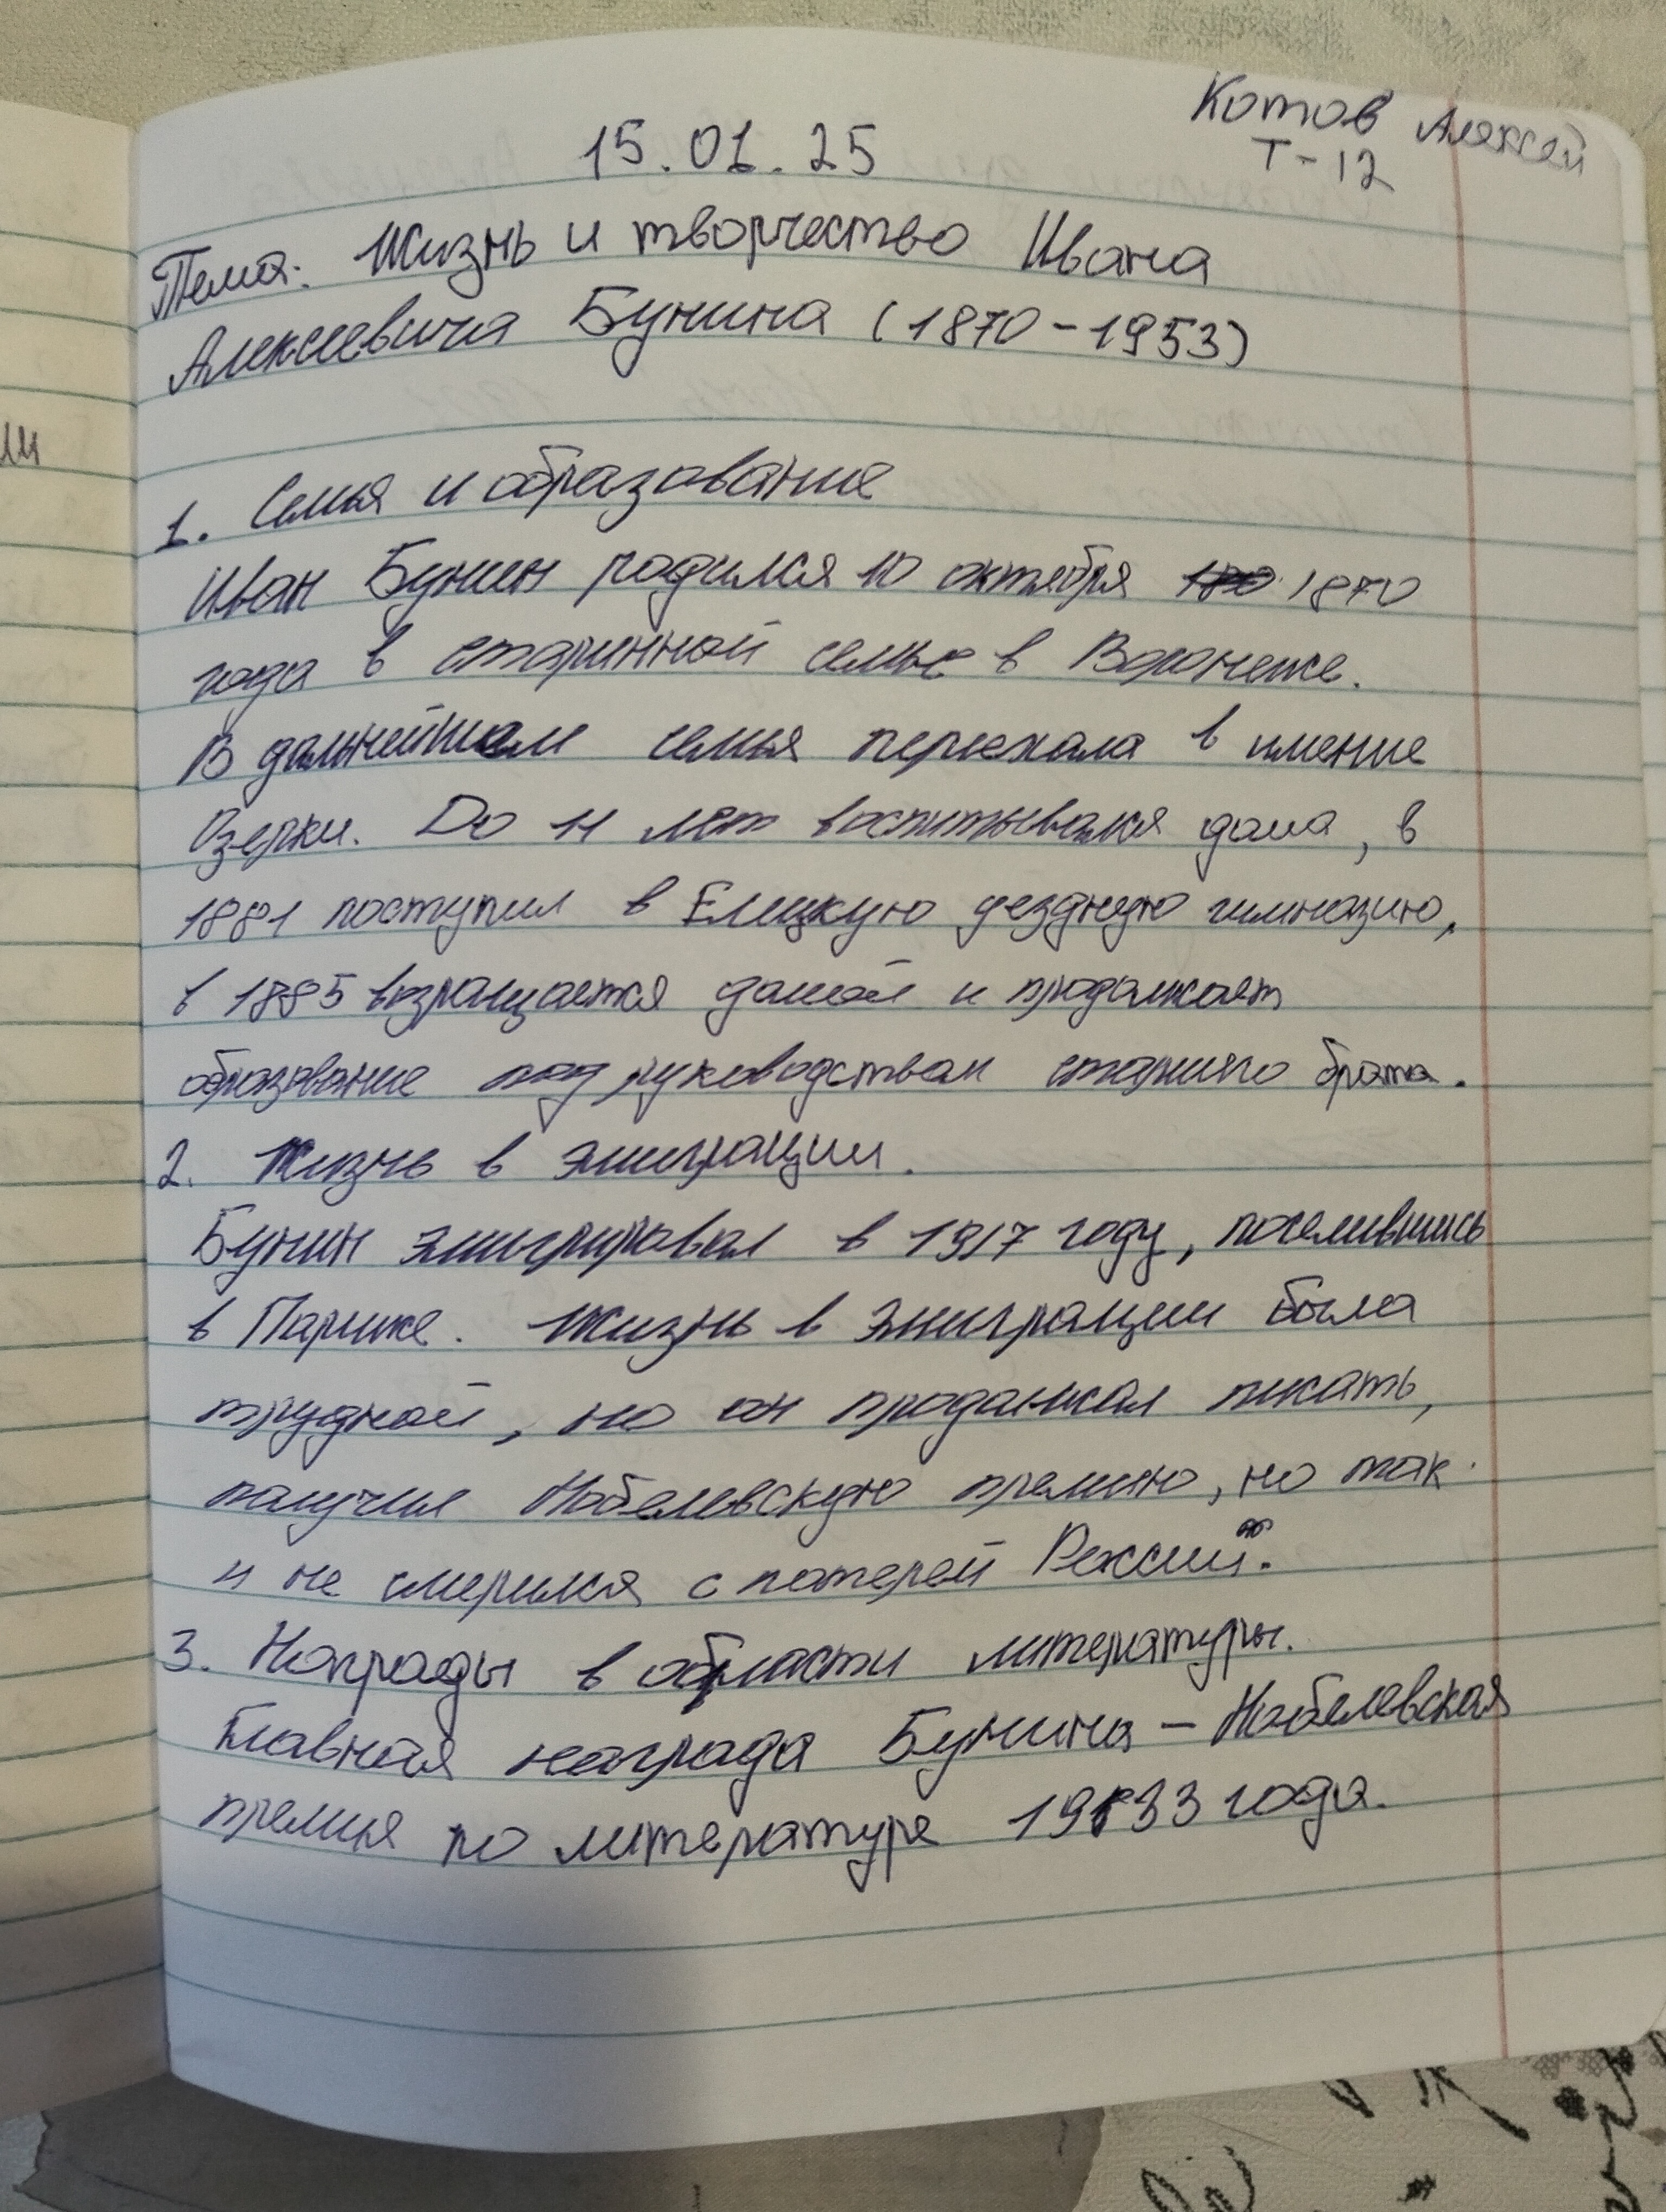 Котов Алексей
Т-12
15.01.25
Тема: Жизнь и творчество Ивана
Алексеевича Бунина (1870-1953)
1. Семья и образование
Иван Бунин родился 10 октября 1870
года в старинной семье в Воронеже.
В дальнейшем семья переехала в имение
Озерки. До 11 лет воспитывался дома, в
1881 поступил в Елецкую уездную гимназию,
в 1885 возращается домой и продолжает
образование под руководством старшего брата.
2. Жизнь в эмиграции.
Бунин эмигрировал в 1917 году, поселившись
в Париже. Жизнь в эмиграции была
трудной, но он продолжал писать,
получил Нобелевскую премию, но так
и не смерился с потерей России.
3. Награды в области литературы.
Главная награда Бунина - Нобелевская
премия по литературе 1933 года.